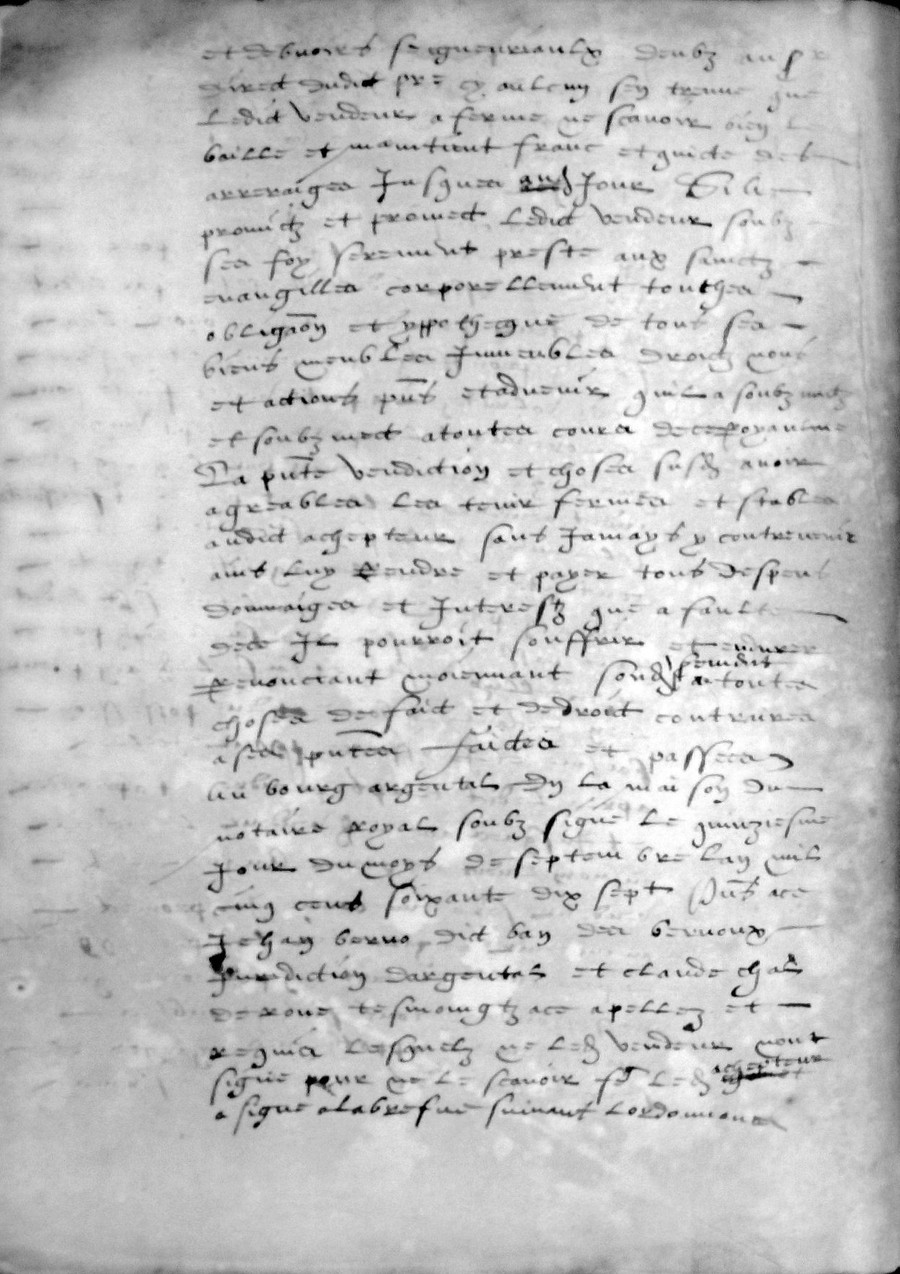 et debvoirs seigneuriaulx deubz au sr
direct dudict pre sy aulcun sen treuve que
Ledict vendeur afferme ne scavoir bien le
baille et maintient franc et quicte des
arreraiges Jusques aud Jour Si a
promictz et promect Ledict vendeur soubz
ses foy serement preste aux sainctz
evangilles corporellement touches
obligaōn et yppothecque de tous ses
biens meubles Immeubles droictz noms
et actions pn̄s et advenir quil a soubzmictz
et soubzmect a toutes cours de ce Royaulme
La pn̄te vendiction et choses susd avoir
agreables Les tenir fermes et stables
audict achepteur sans Jamays y contrevenir
ains Luy Rendre et payer tous despens
dommaiges et Interestz que a faulte
de ce Il pourroit souffrir et endurer
Renonciant moiennant sond serement a toutes
choses de faict et de droict contraires
a ses pn̄tes faictes et passees
au bourg argental En La maison du
notaire Royal soubz signe Le quinziesme
Jour du moys de septembre Lan mil
cinq cens soixante dix sept Pn̄s a ce
Jehan berno dict ban des bernoux
Jurediction dargental et claude chal
de roue tesmoingtz a ce apellez et
Requis Lesquelz ne Led vendeur nont
signe pour ne Le scavoir Led achepteur
a signe a La brefve suivant Lordonnance